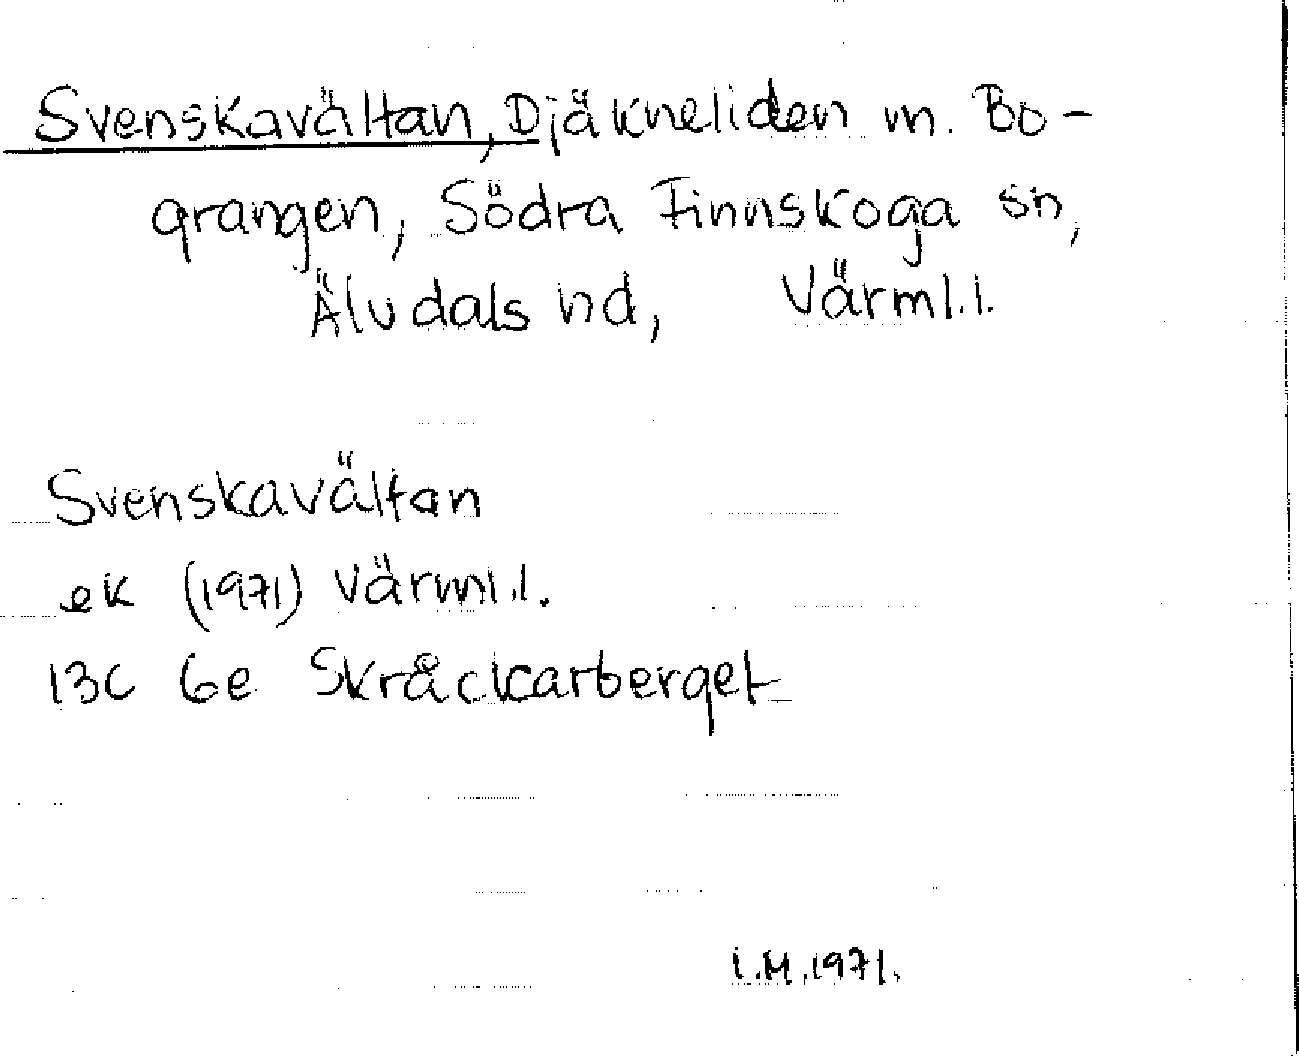 Svenskavältan, Djäkneliden m. Bo-
grangen, Södra Finnskoga sn,
Älvdals hd, Värml.l.
Svenskavältan
ek (1971) Värml.l.
13C 6e Skråckarberget
I.M.1971.